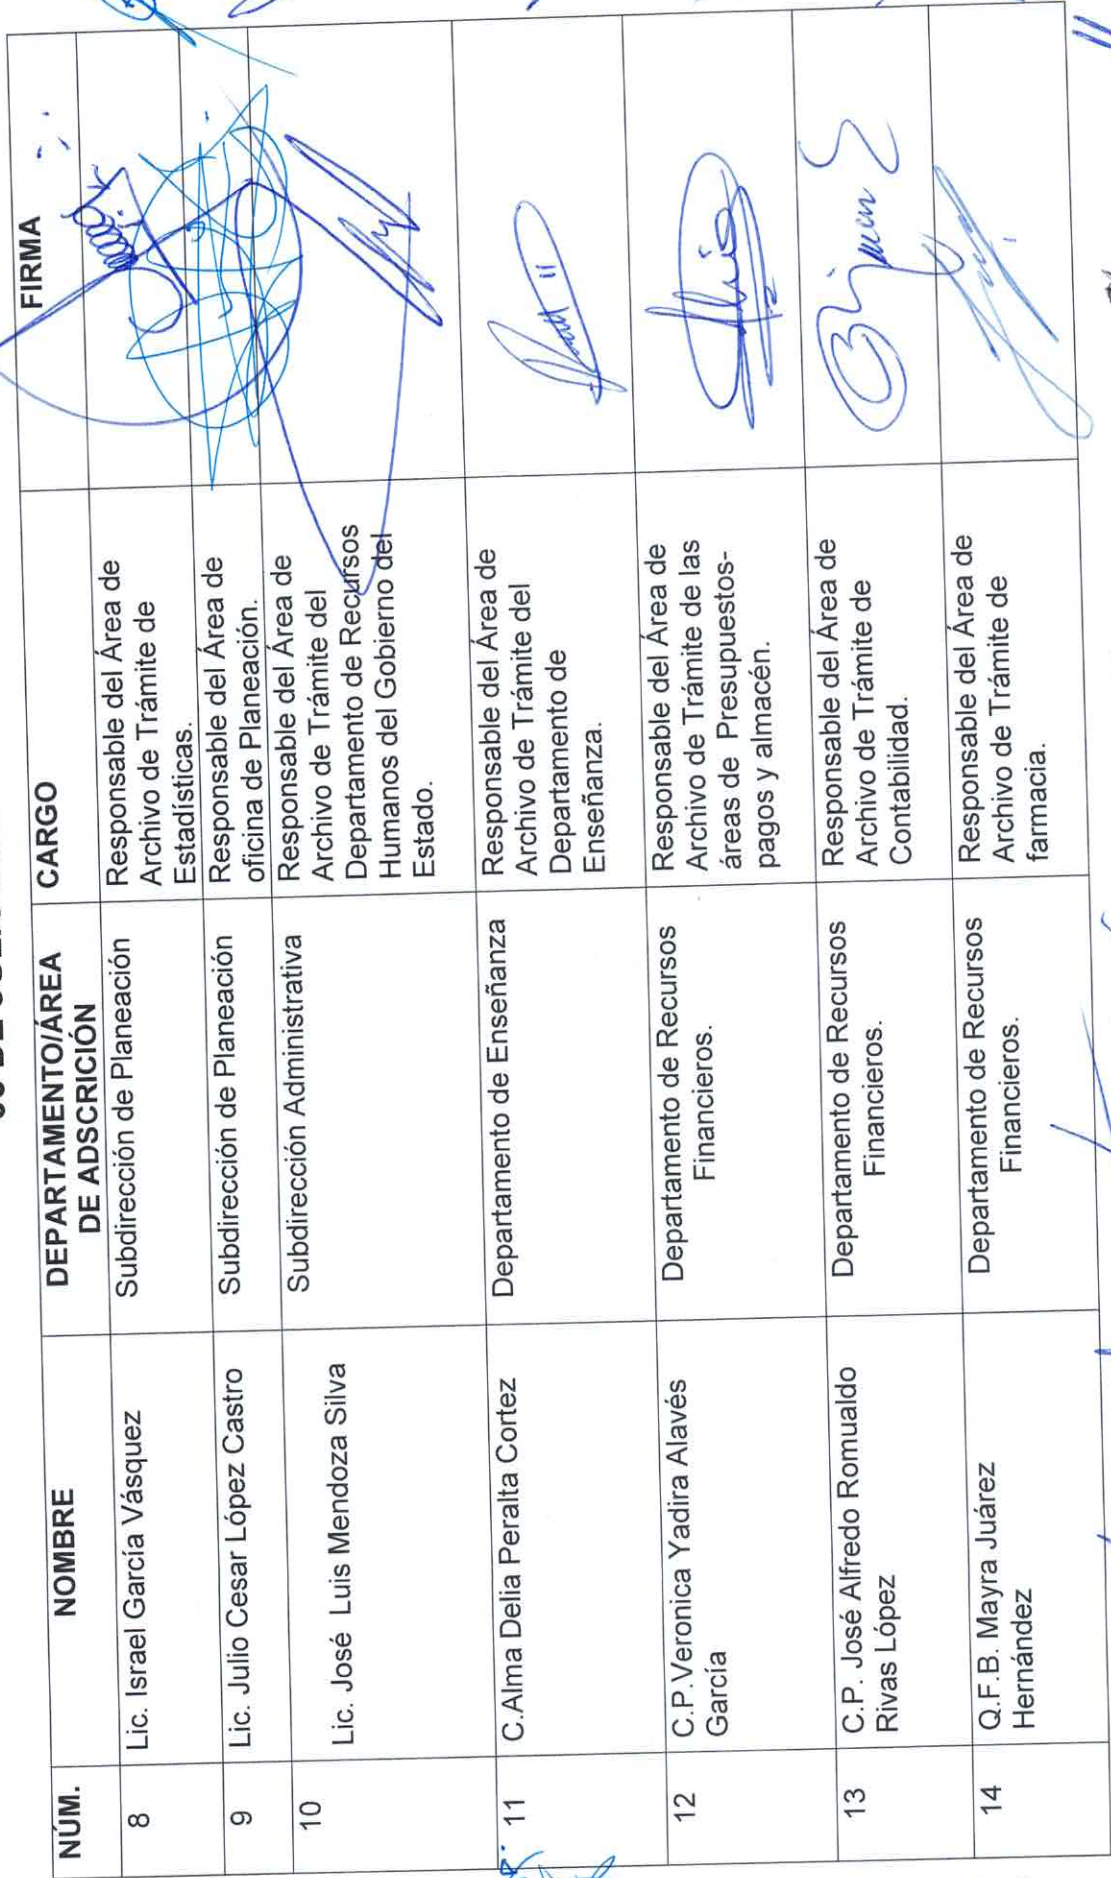 NÚM. NOMBRE DEPARTAMENTO/ÁREA CARGO FIRMA
DE ADSCRICIÓN
8 Lic. Israel García Vásquez Subdirección de Planeación Responsable del Área de
Archivo de Trámite de
Estadísticas.
9 Lic. Julio Cesar López Castro Subdirección de Planeación Responsable del Área de
oficina de Planeación.
10 Lic. José Luis Mendoza Silva Subdirección Administrativa Responsable del Área de
Archivo de Trámite del
Departamento de Recursos
Humanos del Gobierno del
Estado.
11 C.Alma Delia Peralta Cortez Departamento de Enseñanza Responsable del Área de
Archivo de Trámite del
Departamento de
Enseñanza.
12 C.P.Veronica Yadira Alavés Departamento de Recursos Responsable del Área de
García Financieros. Archivo de Trámite de las
áreas de Presupuestos-
pagos y almacén.
13 C.P. José Alfredo Romualdo Departamento de Recursos Responsable del Área de
Rivas López Financieros. Archivo de Trámite de
Contabilidad.
14 Q.F.B. Mayra Juárez Departamento de Recursos Responsable del Área de
Hernández Financieros. Archivo de Trámite de
farmacia.